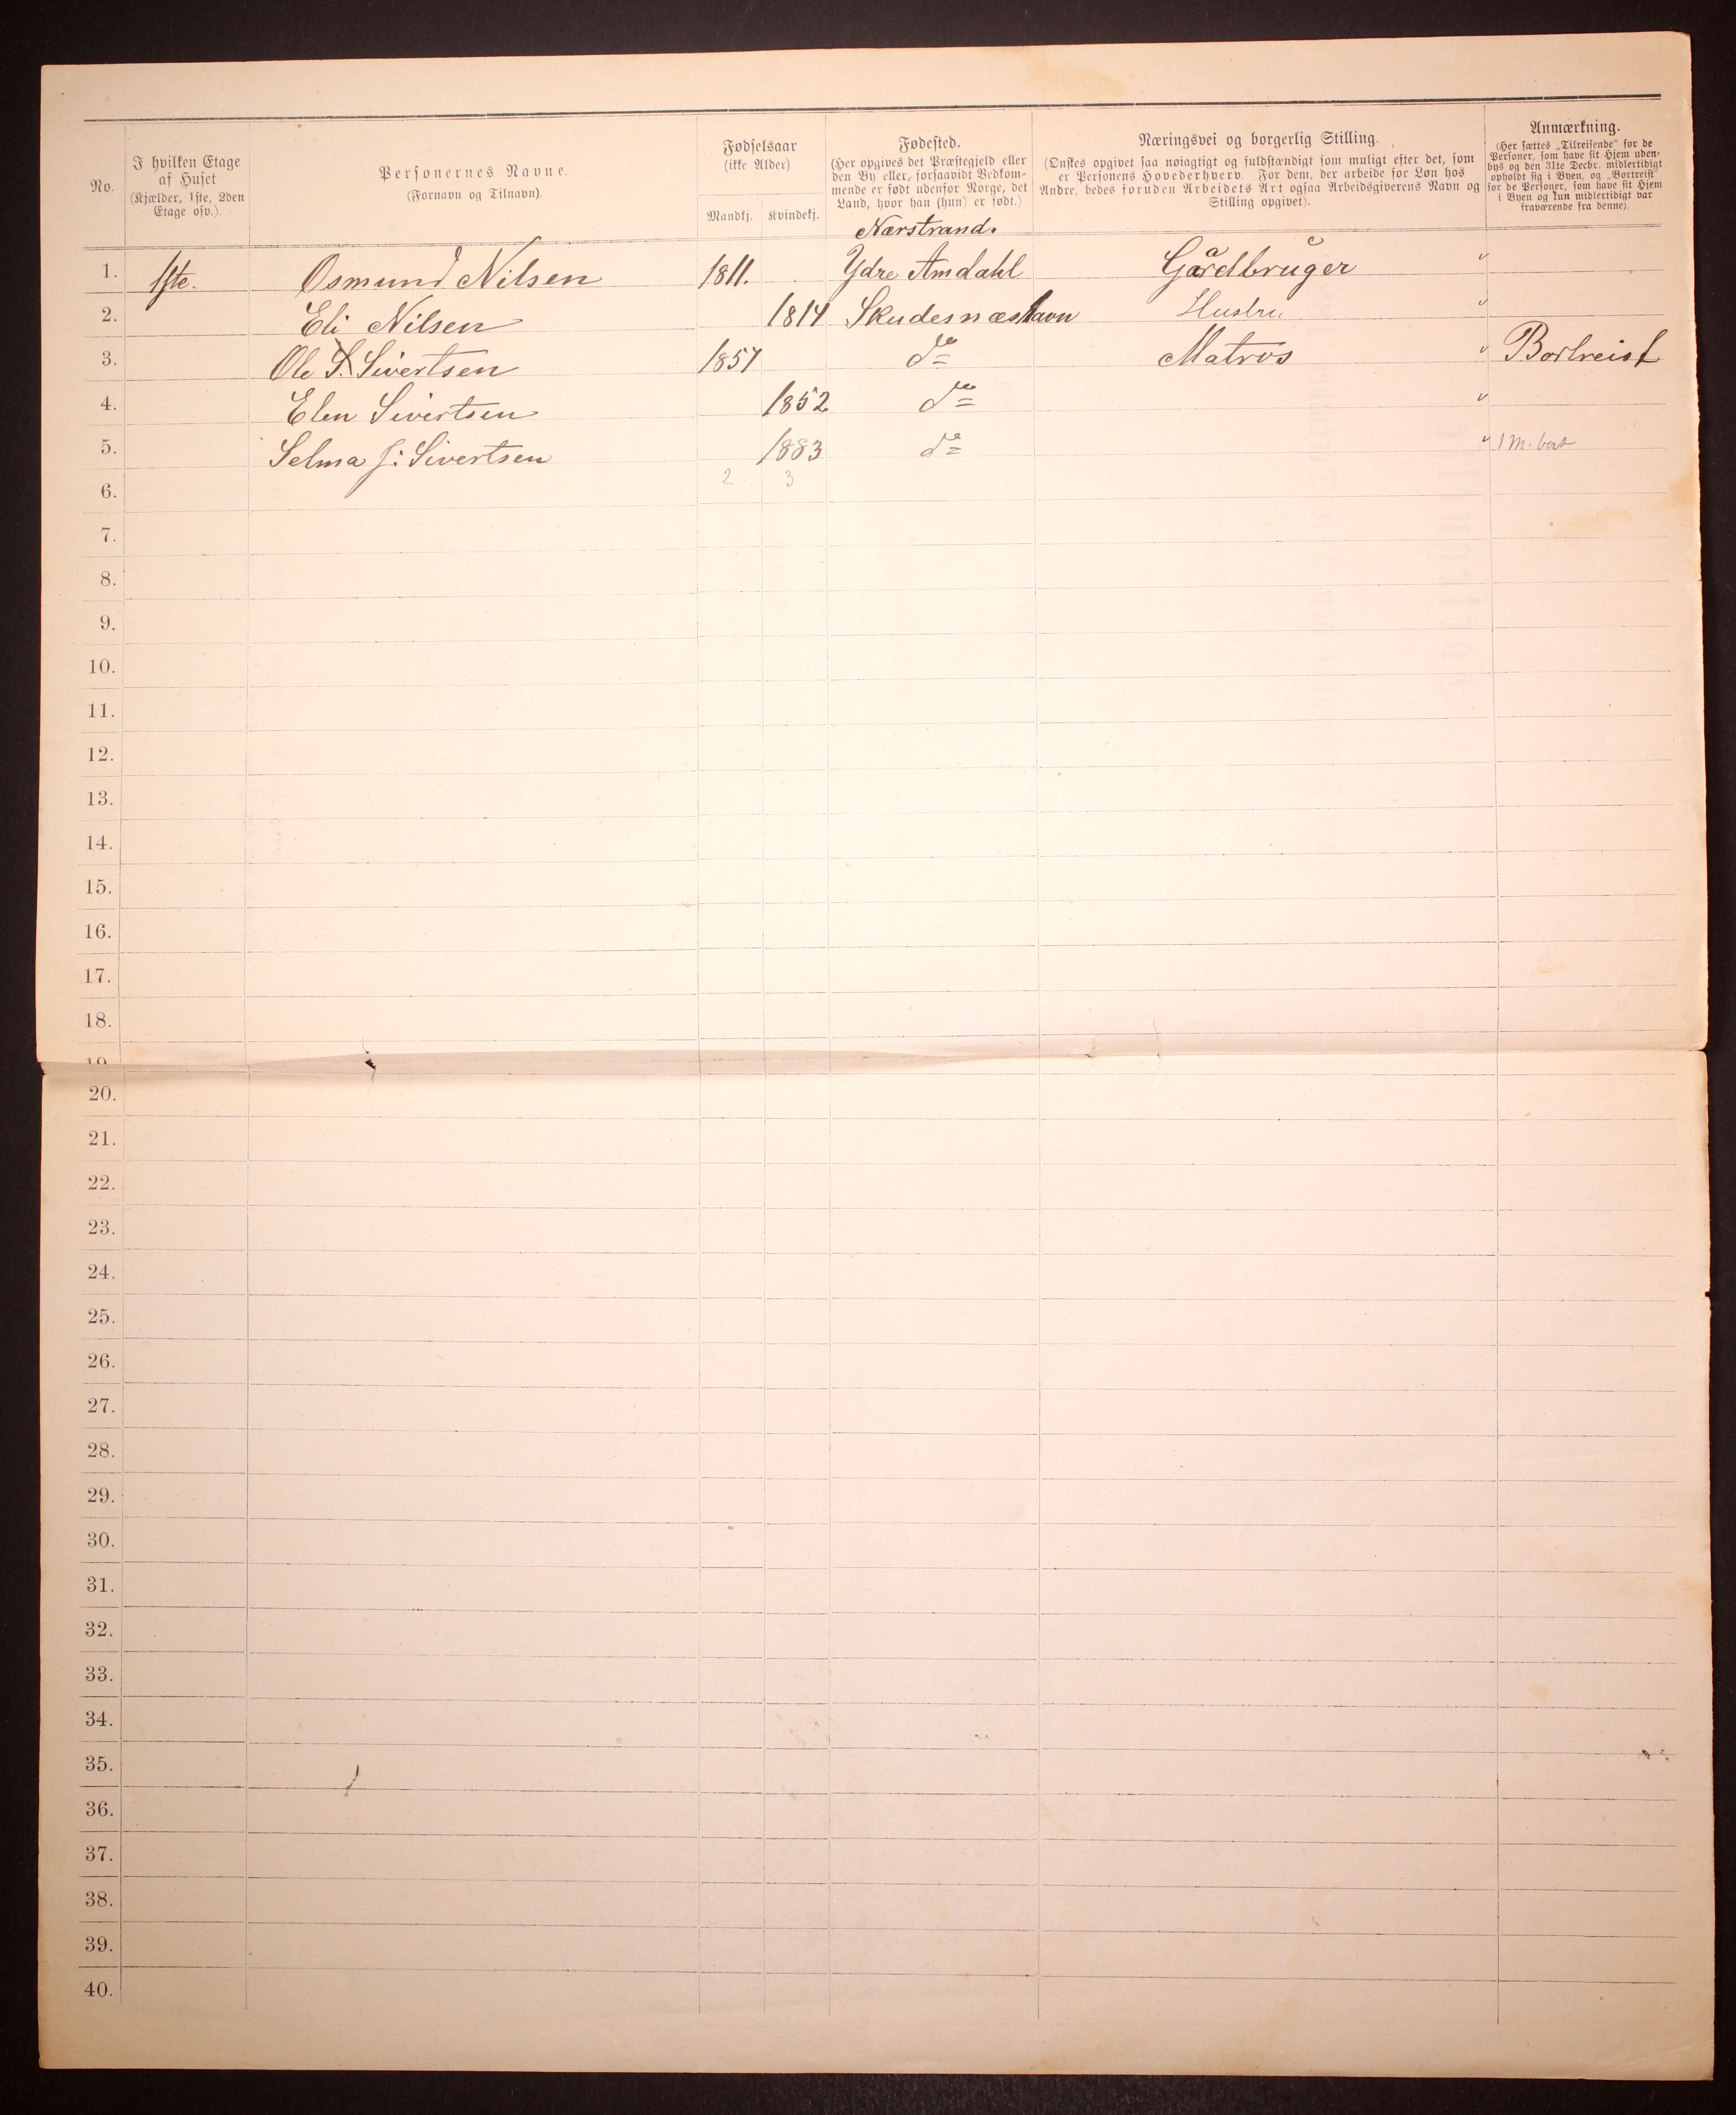 No.
I hvilken Etage
af Huset
(Kjælder, 1ste, 2den
Etage osv.).
Personernes Navne.
(Fornavn og Tilnavn).
Fødselsaar
(ikke Alder)
Mandkj. Kvindekj.
Fødested.
(Her opgives det Præstegjeld eller
den By eller, forsaavidt Vedkom-
mende er født udenfor Norge, det
Land, hvor han (hun) er født.)
Næringsvei og borgerlig Stilling.
(Ønskes opgivet saa nøiagtigt og fuldstændigt som muligt efter det, som
er Personens Hovederhverv. For dem, der arbeide for Løn hos
Andre, bedes foruden Arbeidets Art ogsaa Arbeidsgiverens Navn og
Stilling opgivet).
Anmærkning.
(Her sættes „Tilreisende" for de
Personer, som have sit Hjem uden-
bys og den 31te Decbr. midlertidigt
opholdt sig i Byen, og „Bortreist"
for de Personer, som have sit Hjem
i Byen og kun midlertidigt var
fraværende fra denne).
Nærstrand.
1. 1ste. Osmund Nilsen 1811. Ydre Amdahl Gaardbruger
2. Eli Nilsen 1814 Skudesnæshavn Hustru
3. Ole S. Sivertsen 1857 do Matros Bortreist
4. Elen Sivertsen 1852 do
5. Selma J: Sivertsen 1883 do 1 M. bort
6. 2 3
7.
8.
9.
10.
11.
12.
13.
14.
15.
16.
17.
18.
19
20.
21.
22.
23.
24.
25.
26.
27.
28.
29.
30.
31.
32.
33.
34.
35.
36.
37.
38.
39.
40.